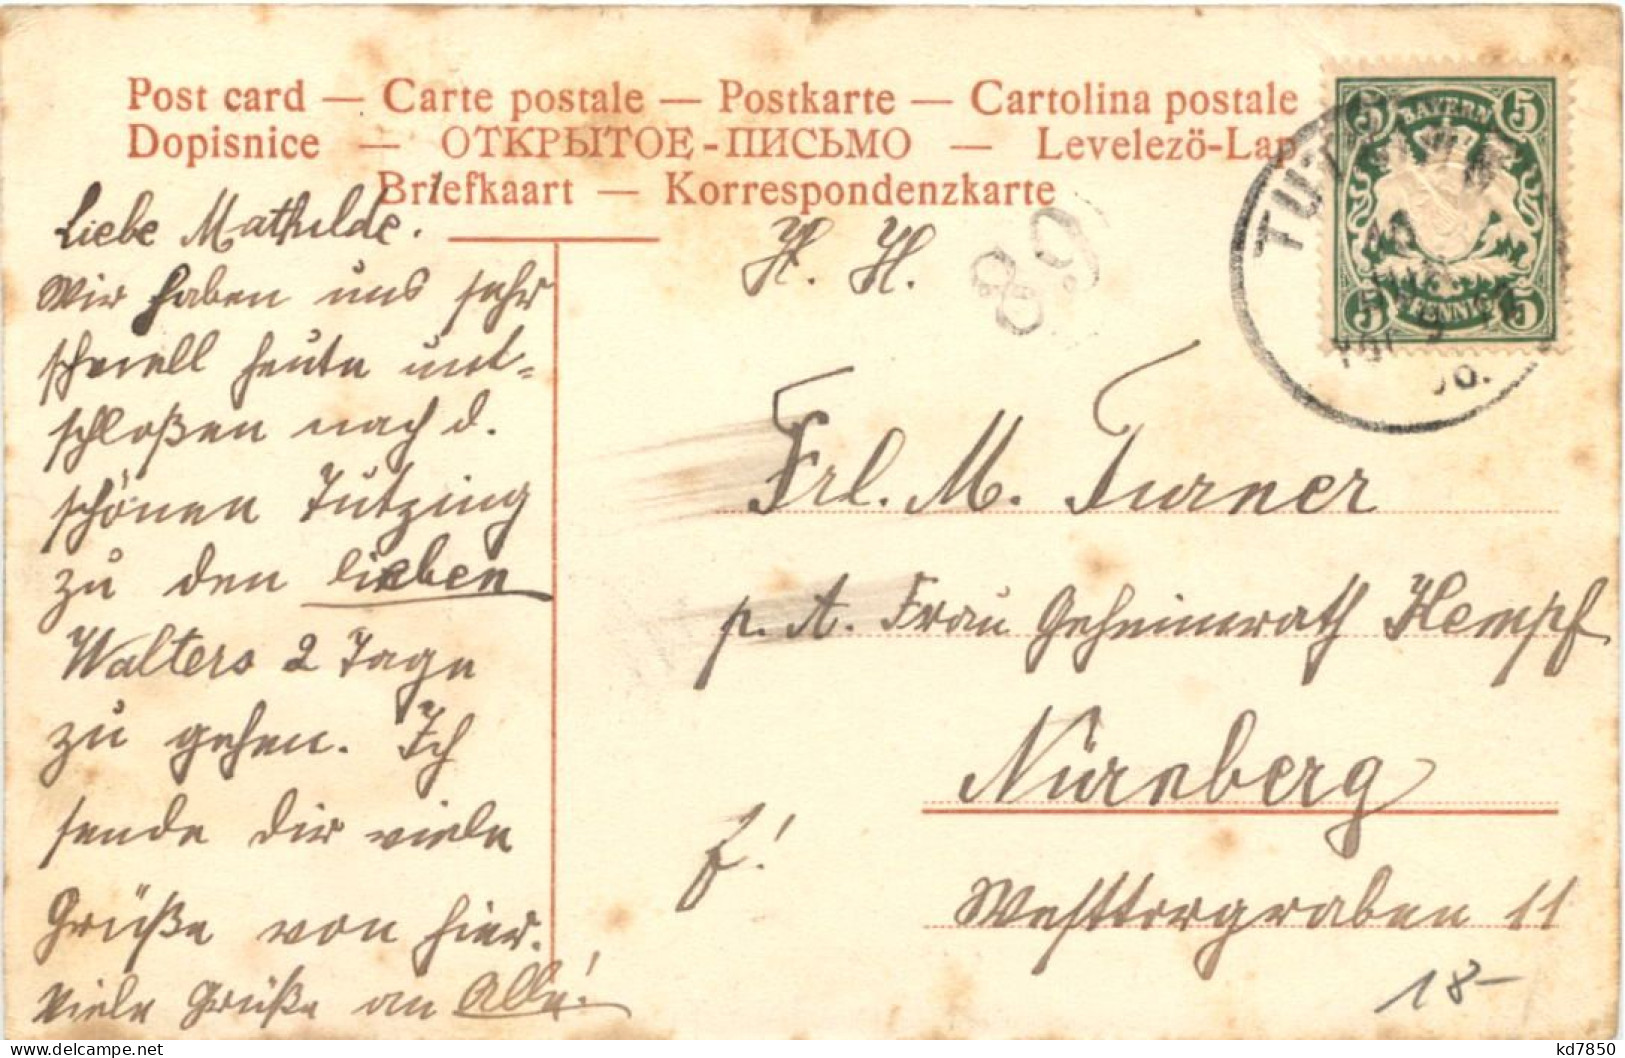 Post card — Carte postale — Postkarte — Cartolina postale
Dopisnice — ОТКРЫТОЕ-ПИСЬМО — Levelező-Lap
Briefkaart — Korrespondenzkarte
Liebe Mathilde.
Wir haben uns sehr
schnell heute ent-
schloßen nach d.
schönen Tutzing
zu den lieben
Walters 2 Tage
zu gehen. Ich
sende dir viele
Grüße von hier.
Viele Grüße an Alle!
H. H.
89
BAYERN
5 5
5 PFENNIG 5
TUTZ
06.
Frl. M. Turner
p. A. Frau Geheimrath Kempf
Nürnberg
f!
Westtorgraben 11
18-
kd7850
delcampe.net